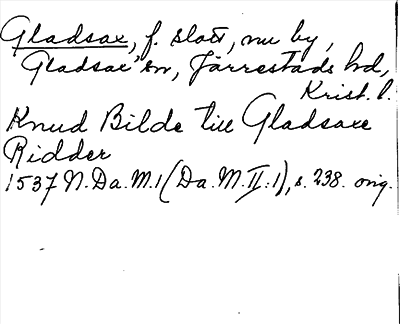 Gladsax, f. slott, nu by,
Gladsax' sn, Järrestads hd,
Krist. l.
Knud Bilde till Gladsaxe
Ridder
1537 N.Da.M.1 (Da.M.II:1), s. 238. orig.